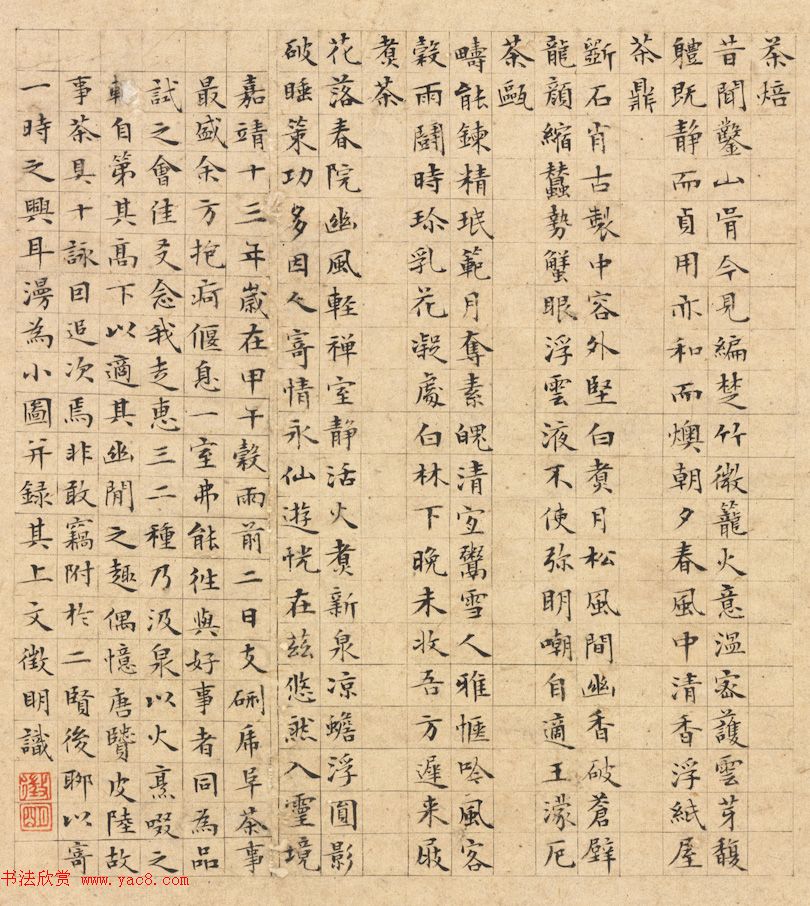 茶焙
昔聞鑿山骨今見編楚竹微籠火意溫密護雲芽馥
體既静而貞用亦和而燠朝夕春風中清香浮紙屋
茶鼎
斲石肖古製中容外堅白煮月松風間幽香破蒼壁
龍顏縮蠶勢蟹眼浮雲液不使弥明嘲自適王濛厄
茶甌
疇能鍊精珉範月奪素魄清宜鬻雪人雅愜吟風客
穀雨鬪時珍乳花凝處白林下晚未收吾方遲来屐
煮茶
花落春院幽風軽禅室静活火煮新泉凉蟾浮圓影
破睡策功多因人寄情永仙遊恍在兹悠然入靈境
嘉靖十三年嵗在甲午穀雨前二日支硎虎阜茶事
最盛余方抱疴偃息一室弗能往與好事者同為品
試之會佳友念我走惠三二種乃汲泉以火烹啜之
輒自第其髙下以適其幽閒之趣偶憶唐賢皮陸故
事茶具十詠因追次焉非敢竊附於二賢後聊以寄
一時之興耳漫為小圖并録其上文徵明識
徵明
书法欣赏 www.yac8.com